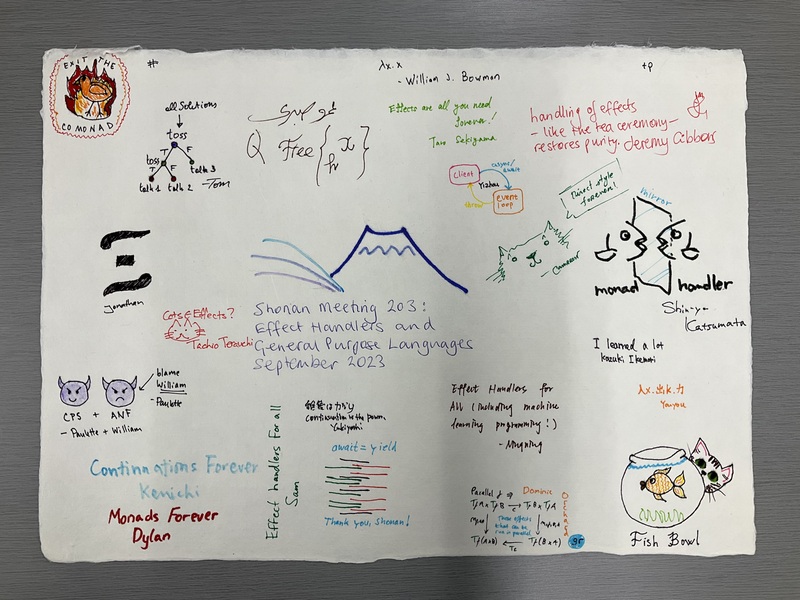 EXIT THE
COMONAD
#
λx.x
- William J. Bowman
+p
all Solutions
toss
T
F
toss
T
F
tails 3
tails 1
tails 2
- Tom
Q
Free {
Effects are all you need
forever!
Taro Sekiyama
handling of effects
- like the tea ceremony -
restores purity. Jeremy Gibbons
Client
async/
await
Yizhou
event
loop
Direct style
forever!
mirror
monad
handler
Shin-ya
Katsumata
Jonathan
Cats & Effects?
Tachio Terauchi
Shonan Meeting 203:
Effect Handlers and
General Purpose Languages
September 2023
I learned a lot
blame
William
- Paulette
CPS + ANF
- Paulette + William
Continuations Forever
Kenichi
Monads Forever
Dylan
Effect handlers for all
Sam
Continuation is the power
Yukiyoshi
await = yield
Thank you, Shonan!
Effect Handlers for
All (including machine
learning programming!)
- Ningning
λx.出k.力
Youyou
Parallel
Dominic
These effects
what can be
run in parallel
Fish Bowl